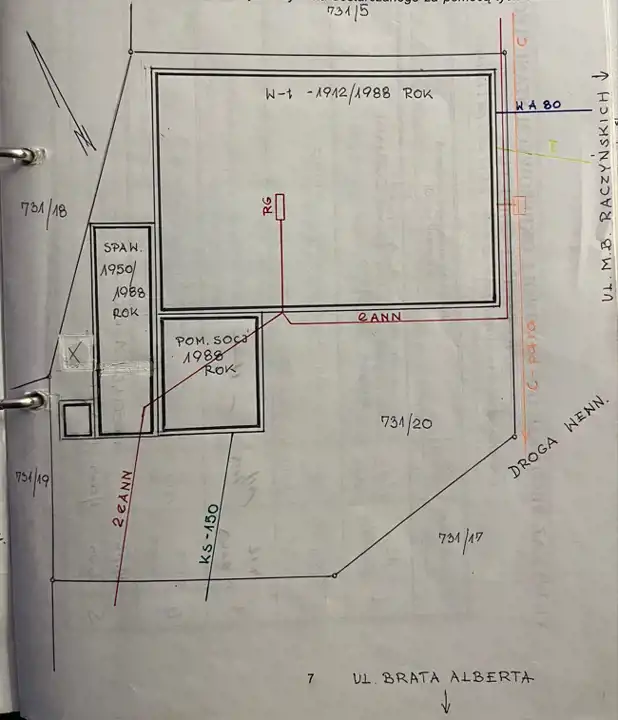 dostarczanego za pomocą
731/5
C
W-t -1912/1988 ROK
WA 80
T
UL. M.B. RACZYŃSKICH
N
731/18
RG
SPAW.
1950/
1988
ROK
POM. SOCJ
1988
ROK
eANN
C-para
X
731/20
DROGA WEWN.
731/19
2eANN
KS-150
731/17
7
UL. BRATA ALBERTA